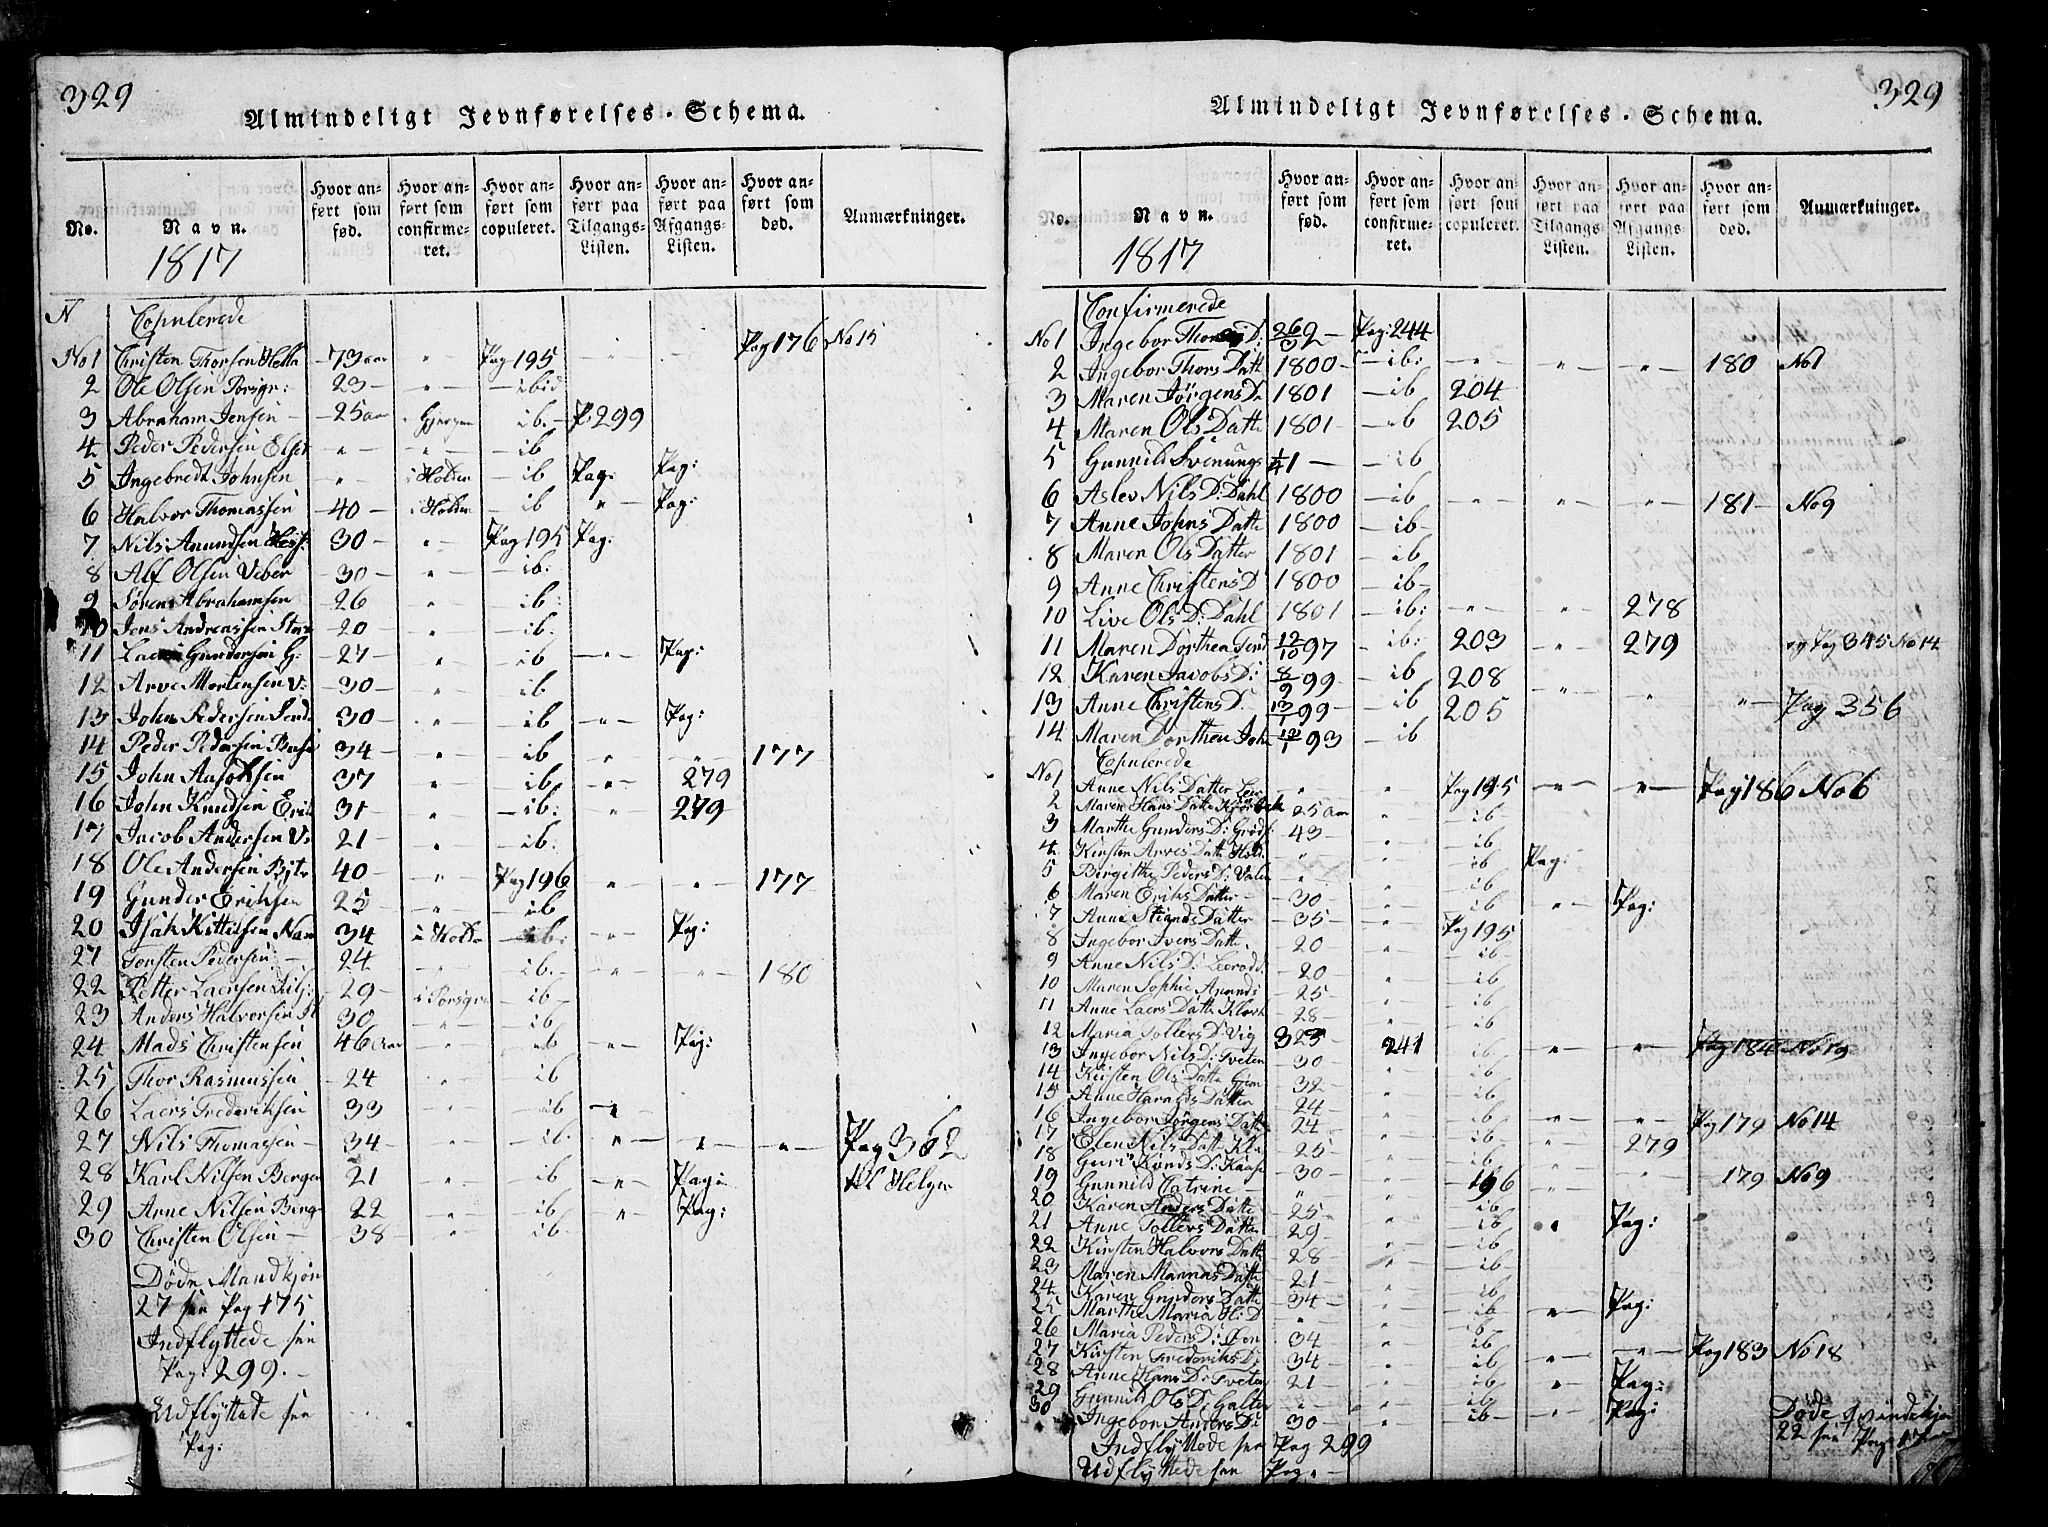 329
Almindeligt Jevnførelses-Schema.
No. Navn. Hvor anført som fød. Hvor anført som confirmeret. Hvor anført som copuleret. Hvor anført paa Tilgangs-Listen. Hvor anført paa Afgangs-Listen. Hvor anført som død. Anmærkninger.
1817
N Copulerede
No 1 Christen Thorsen 73 aar " Pag 195 " " Pag 176 No 15
2 Ole Olsen Porsgr: 23 " ibid
3 Abraham Jensen 25 aar ib. P. 299
4 Peder Pedersen " " ib
5 Ingebredt Johnsen " i Holden ib Pag: Pag:
6 Halvor Thomassen 40 i Holden ib " Pag:
7 Nils Anundsen 30 " Pag 195 Pag:
8 Alf Olsen Veber 30 " ib:
9 Søren Abrahamsen 26 " ib:
10 Jens Andreassen 20 " ib.
11 Gundersen G: 27 " ib " Pag:
12 Arve Mortensen V: 30 " ib
13 John Pedersen 30 " ib " Pag:
14 Peder Pedersen 34 " ib " " 177
15 John 37 " ib " 279
16 John Knudsen 31 " ib: " 279
17 Jacob Andersen 21 " ib:
18 Ole Andersen 40 " Pag 196 " " 177
19 Gunder Eriksen 25 " ib
20 Isak Kittilsen 34 i Holden ib: " Pag:
21 Torsten Pedersen 24 " ib. " " 180
22 Petter Laersen 29 i Porsgr ib
23 Anders Halvorsen 30 " ib
24 Mads Christensen 46 Aar " ib " Pag:
25 Thor Rasmussen 24 " ib
26 Laers Frederiksen 33 " ib "
27 Nils Thomassen 34 " ib. " " " Pag 362
28 Karl Nilsen Bergen 21 " ib " Pag: til Helgen
29 Arne Nilsen Berg 22 " ib " Pag:
30 Christen Olsen 38 " ib
Døde Mandkjøn
27 see Pag 175
Indflyttede see
Pag: 299.
Udflyttede see
Pag:
329
Almindeligt Jevnførelses-Schema.
No. Navn. Hvor anført som fød. Hvor anført som confirmeret. Hvor anført som copuleret. Hvor anført paa Tilgangs-Listen. Hvor anført paa Afgangs-Listen. Hvor anført som død. Anmærkninger.
1817
Confirmerede
No 1 Ingebor D: Pag: 244
2 Ingebor Thors Datt 1800 ib: " " " 180 No 1
3 Maren Jörgens D 1801 ib 204
4 Maren Ols Datte 1801 ib 205
5 Gunnild Svenungs ib
6 Aslev Nils D: Dahl 1800 ib " " " 181 No 9
7 Anne Johns Datte 1800 ib
8 Maren Ols Datter 1801 ib
9 Anne Christens D 1800 ib
10 Live Ols D: Dahl 1801 ib: " " 278
11 Maren Dorthea 12/10 97 ib: 203 " 279 og Pag 345 No 14
12 Karen Jacobs D: 8/9 99 ib 208
13 Anne Christens D. 13/1 99 ib 205 " " " Pag 356
14 Maren Dorthea John 12/1 93 ib
Copulerede
No 1 Anne Nils Datter " " Pag 195 " " Pag 186 No 6
2 Maren Hans Datte 25 Aar " ib
3 Marthe Gunders D: 43 " ib
4 Kirsten Arves Datte " " ib Pag:
5 Birgithe Peders D: " " ib
6 Maren Eriks Datter 30 " ib " Pag:
7 Anne Datter 35 " Pag 195
8 Ingebor Ivers Datte. 20 " ib
9 Anne Nils D: 20 " ib
10 Maren Sophie 25 " ib
11 Anne Laers Datte 28 " ib
12 Maria Sollevs D: Vig 323 241 ib " " Pag 184 No 19
13 Ingebor Nils D: Sveten 30 " ib
14 Kirsten Ols Datte 32 " ib
15 Anne Haralds Datter 24 " ib " " Pag 179 No 14
16 Ingebor Jørgens Datte 24 " ib " 279
17 Elen Nils Datte 25 " ib
18 Guri Knuds D: 30 " 196 " " 179 No 9
19 Gunnild Catrine " " ib
20 Karen Anders Datte 25 " ib " Pag:
21 Anne Sollevs Datte 29 " ib
22 Kirsten Halvors Datt 28 " ib
23 Maren Datte 21 " ib
24 Karen Gunders Datte 34 " ib " Pag:
25 Marthe Maria H: D " " ib
26 Maria Peders D: 34 " ib " " Pag 183 No 18
27 Kirsten Frederiks D: 34 " ib
28 Anne Hans D: Sveten 21 " ib " Pag:
29 Gunnild Ols D: " " ib " Pag:
30 Ingebor D: 30 " ib
Indflyttede see Pag 299
Udflyttede see Pag. "
Døde Qvindekjøn
22 see Pag: 17